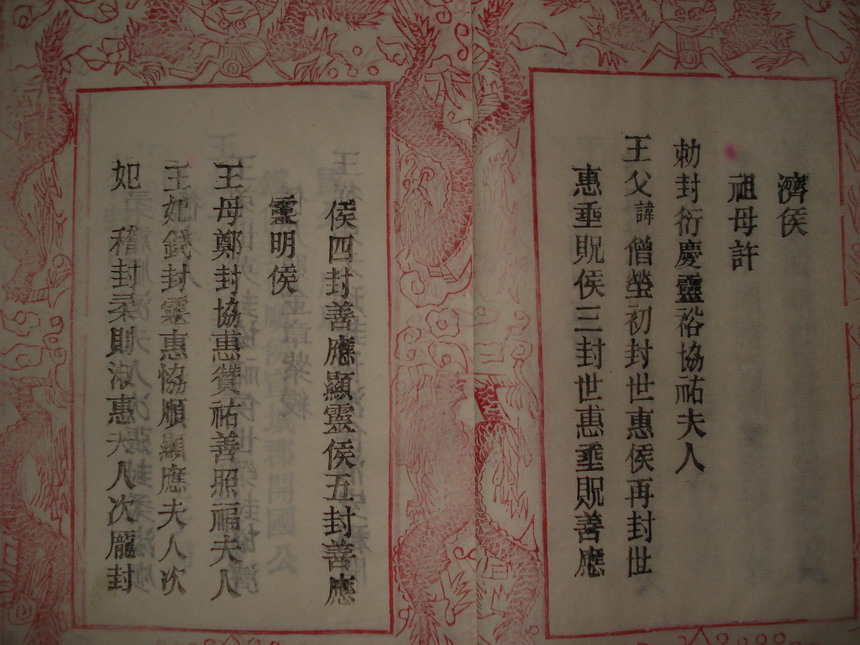 濟侯
祖母許
勅封衍慶靈裕協祐夫人
王父諱僧瑩初封世惠侯再封世
惠垂貺侯三封世惠垂貺善應
侯四封善應顯靈侯五封善應
靈明侯
王母鄭封協惠贊祐善照福夫人
王妃錢封靈惠協順顯應夫人次
妃 稽封柔則淑惠夫人次龐封